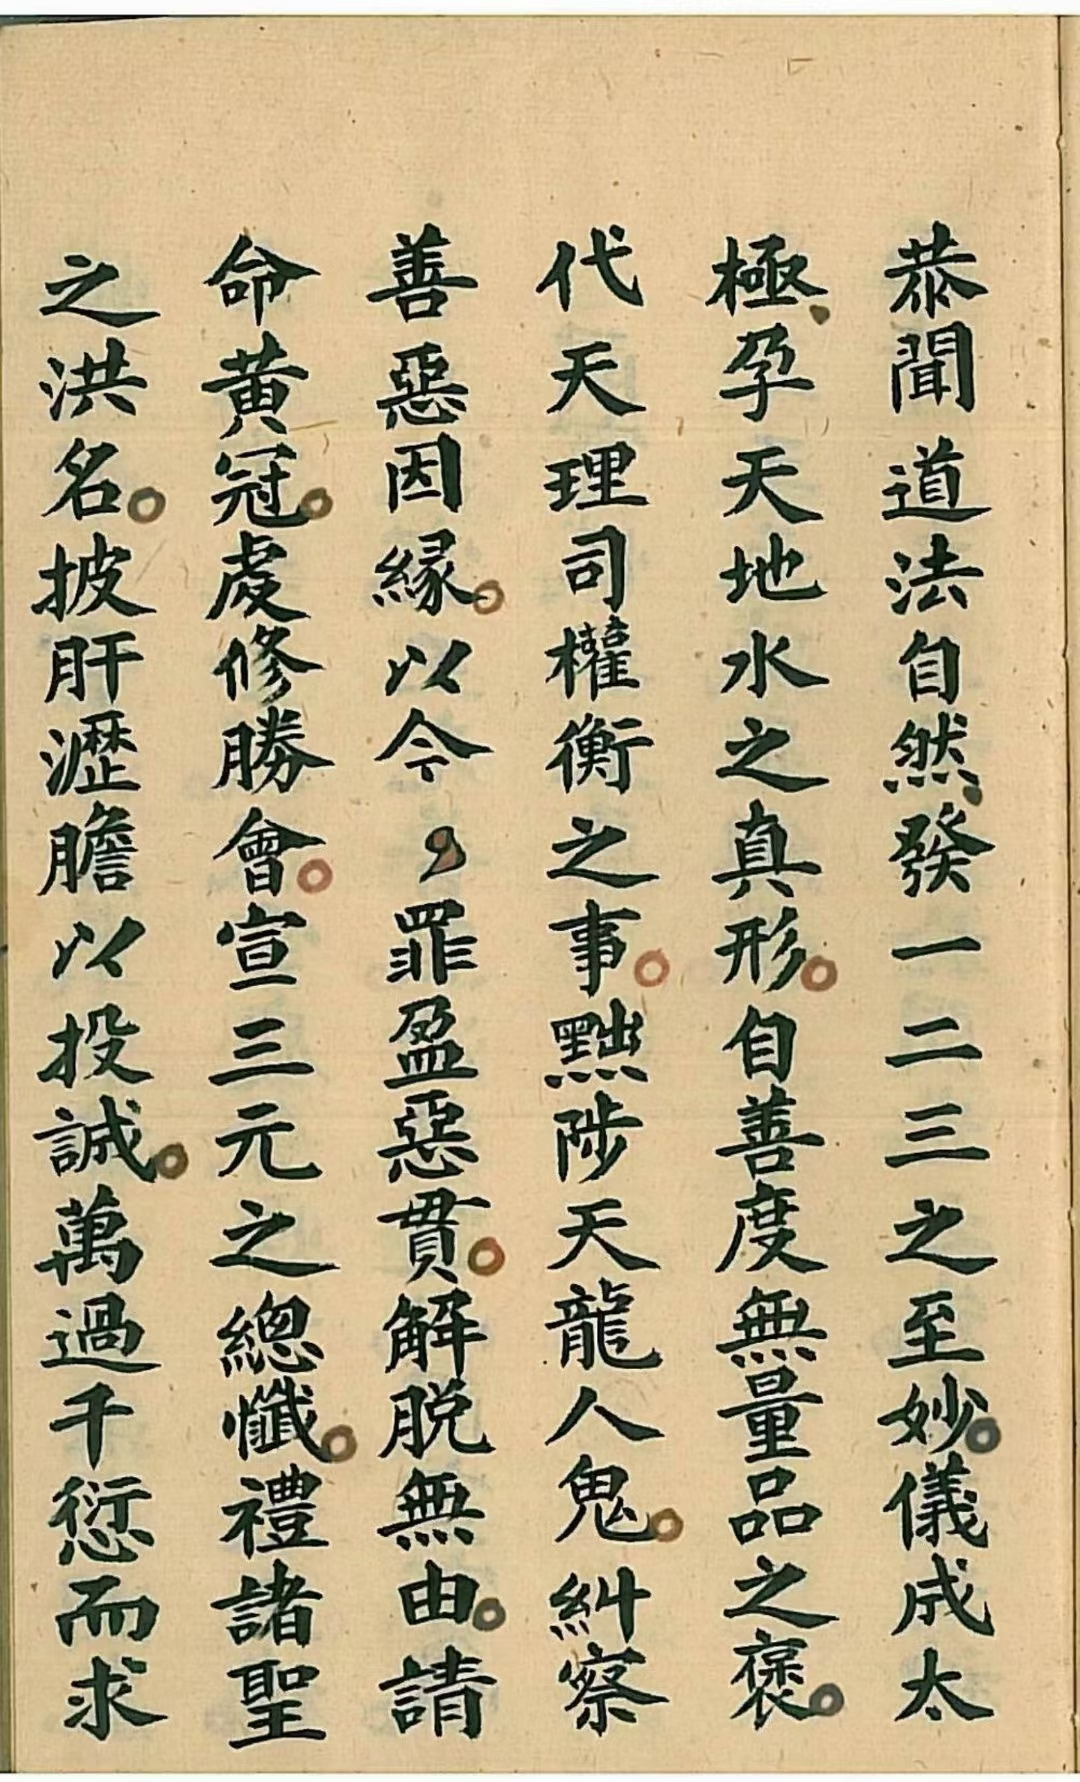 恭聞道法自然發一二三之至妙儀成太
極孕天地水之真形自善度無量品之褒
代天理司權衡之事黜陟天龍人鬼糾察
善惡因緣以今罪盈惡貫解脱無由請
命黃冠處修勝會宣三元之總懺禮諸聖
之洪名披肝瀝膽以投誠萬過千愆而求